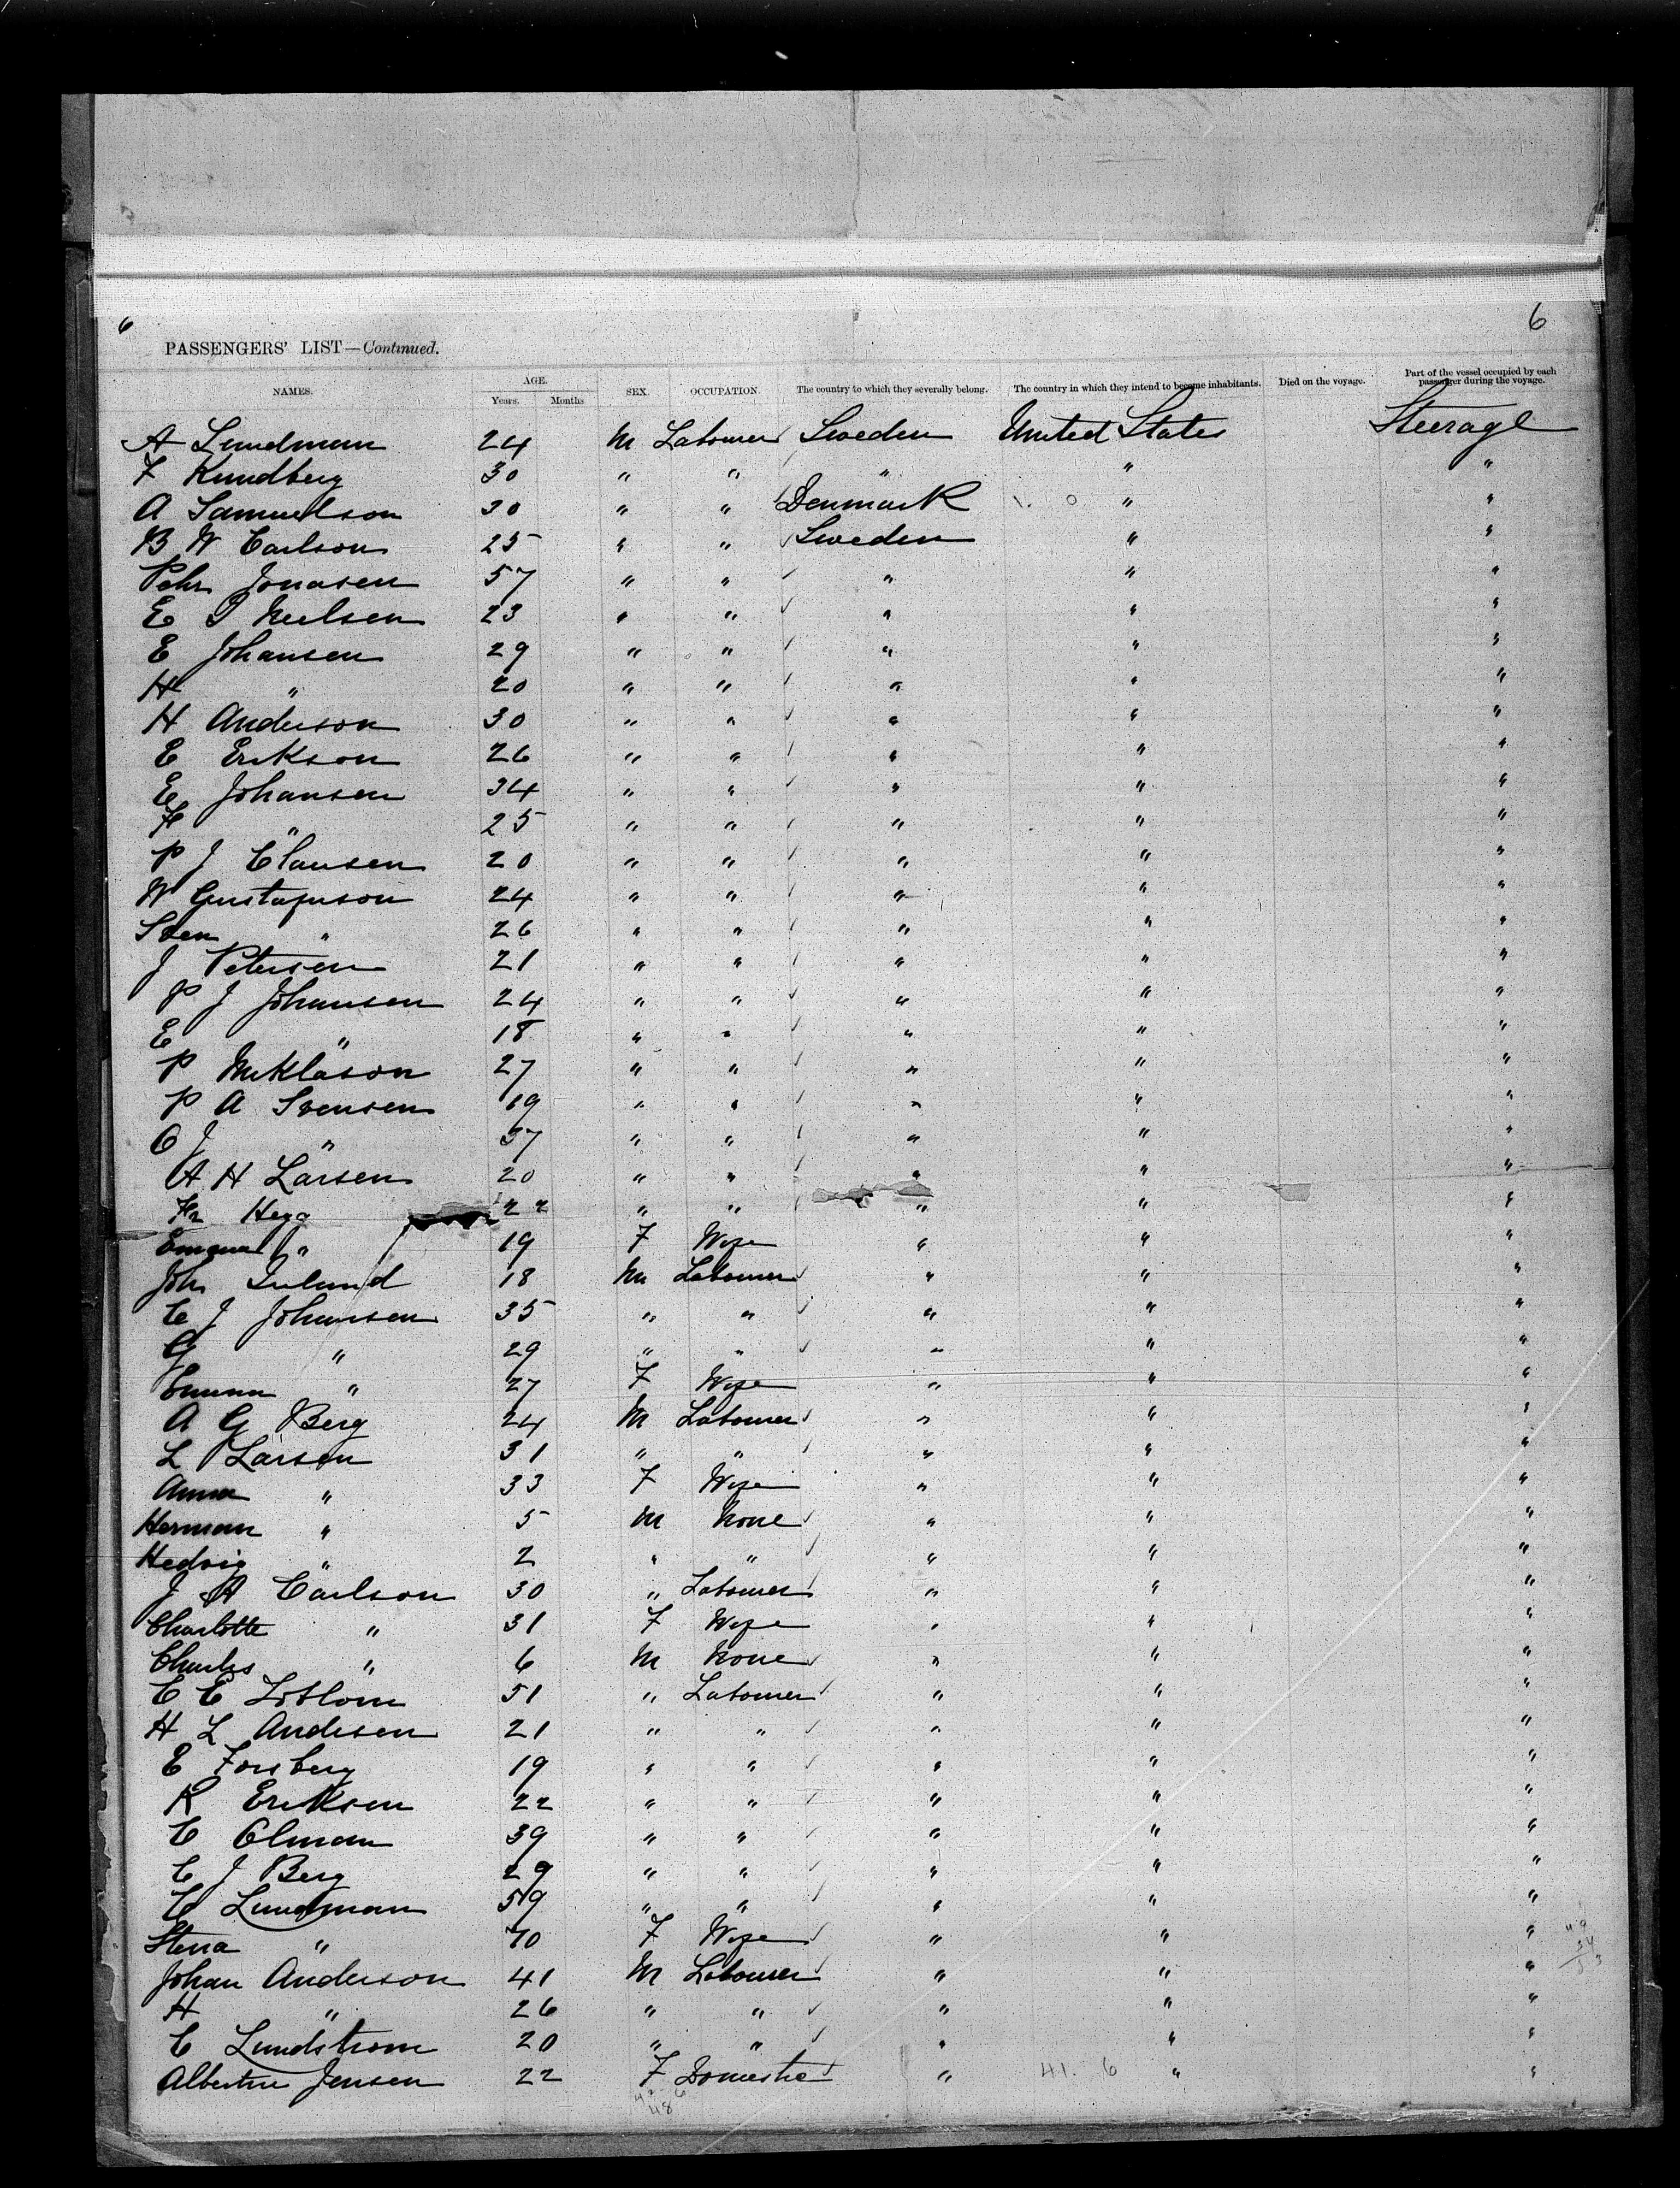 6 6
PASSENGERS' LIST—Continued.
NAMES. AGE. Years. Months SEX. OCCUPATION. The country to which they severally belong. The country in which they intend to become inhabitants. Died on the voyage. Part of the vessel occupied by each passenger during the voyage.
A Lundman 24 M Labourer Sweden United States Steerage
F Kundberg 30 " " " " "
A Samuelson 30 " " Denmark " "
B W Carlson 25 " " Sweden " "
Pehr Jonasen 57 " " " " "
E P Neilsen 23 " " " " "
E Johansen 29 " " " " "
H " 20 " " " " "
H Anderson 30 " " " " "
E Erikson 26 " " " " "
E Johansen 34 " " " " "
F " 25 " " " " "
P J Clausen 20 " " " " "
W Gustafuson 24 " " " " "
Sven " 26 " " " " "
J Petersen 21 " " " " "
P J Johansen 24 " " " " "
E " 18 " " " " "
P Niklason 27 " " " " "
P A Svensen 19 " " " " "
O J " 37 " " " " "
A H Larsen 20 " " " " "
Fr Hegg 22 " " " " "
" 19 F Wife " " "
Joh 18 M Labourer " " "
C J Johansen 35 " " " " "
G " 29 " " " " "
Emma " 27 F Wife " " "
A G Berg 24 M Labourer " " "
L Larsen 31 " " " " "
Anna " 33 F Wife " " "
Herman " 5 M None " " "
Hedvig " 2 " " " " "
J A Carlson 30 " Labourer " " "
Charlotte " 31 F Wife " " "
Charles " 6 M None " " "
C E 51 " Labourer " " "
H L Andersen 21 " " " " "
E Forsberg 19 " " " " "
K Eriksen 22 " " " " "
C Olman 39 " " " " "
C J Berg 29 " " " " "
C Lundman 59 " " " " "
Stena " 70 F Wife " " "
Johan Anderson 41 M Labourer " " "
H " 26 " " " " "
C Lundstrom 20 " " " " "
Albertine Jensen 22 F Domestic " 41. 6 " "
48